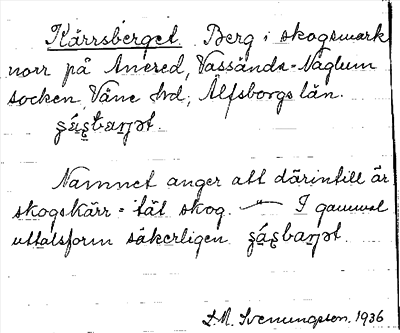 Kärrsberget. Berg i skogsmark
norr på Anered, Vassända-Naglum
socken, Väne hd, Älfsborgs län.
Namnet anger att därintill är
skogskärr = tät skog. — I gammal
uttalsform säkerligen
D.M. Svenungsson. 1936